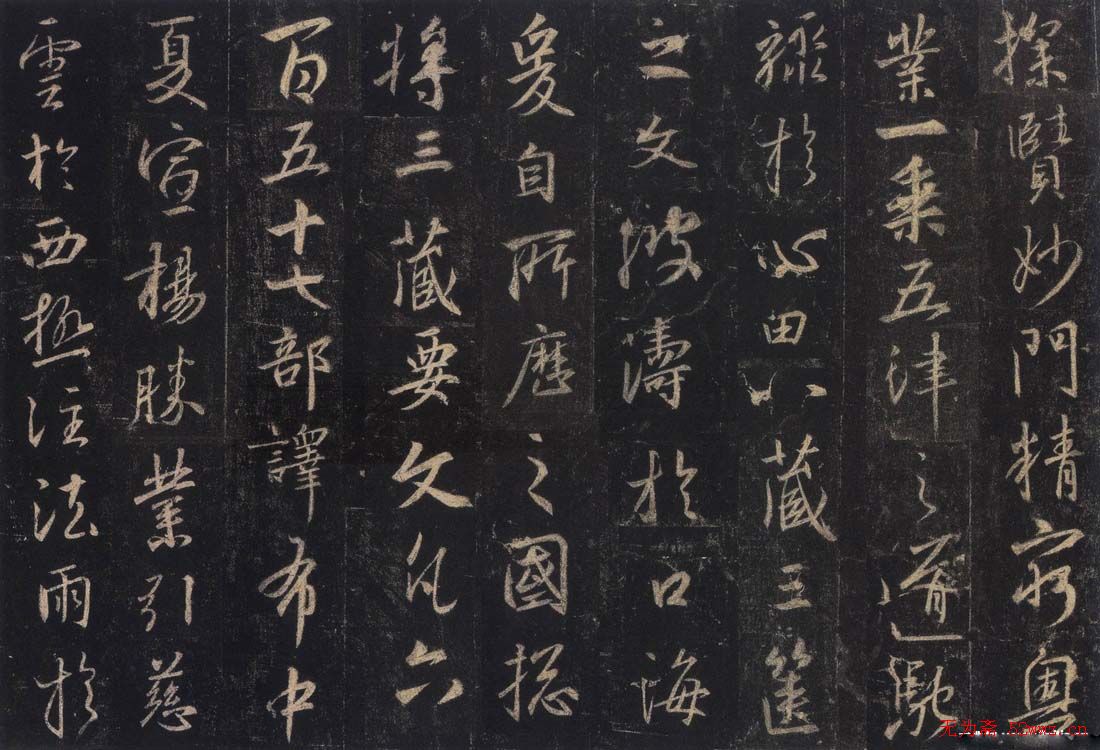 探賾妙門精窮奧
業一乘五律之道馳
驟於心田八藏三篋
之文波濤於口海
爰自所歷之國總
將三藏要文凡六
百五十七部譯布中
夏宣揚勝業引慈
雲於西極注法雨於
无为斋 52wwz.cn